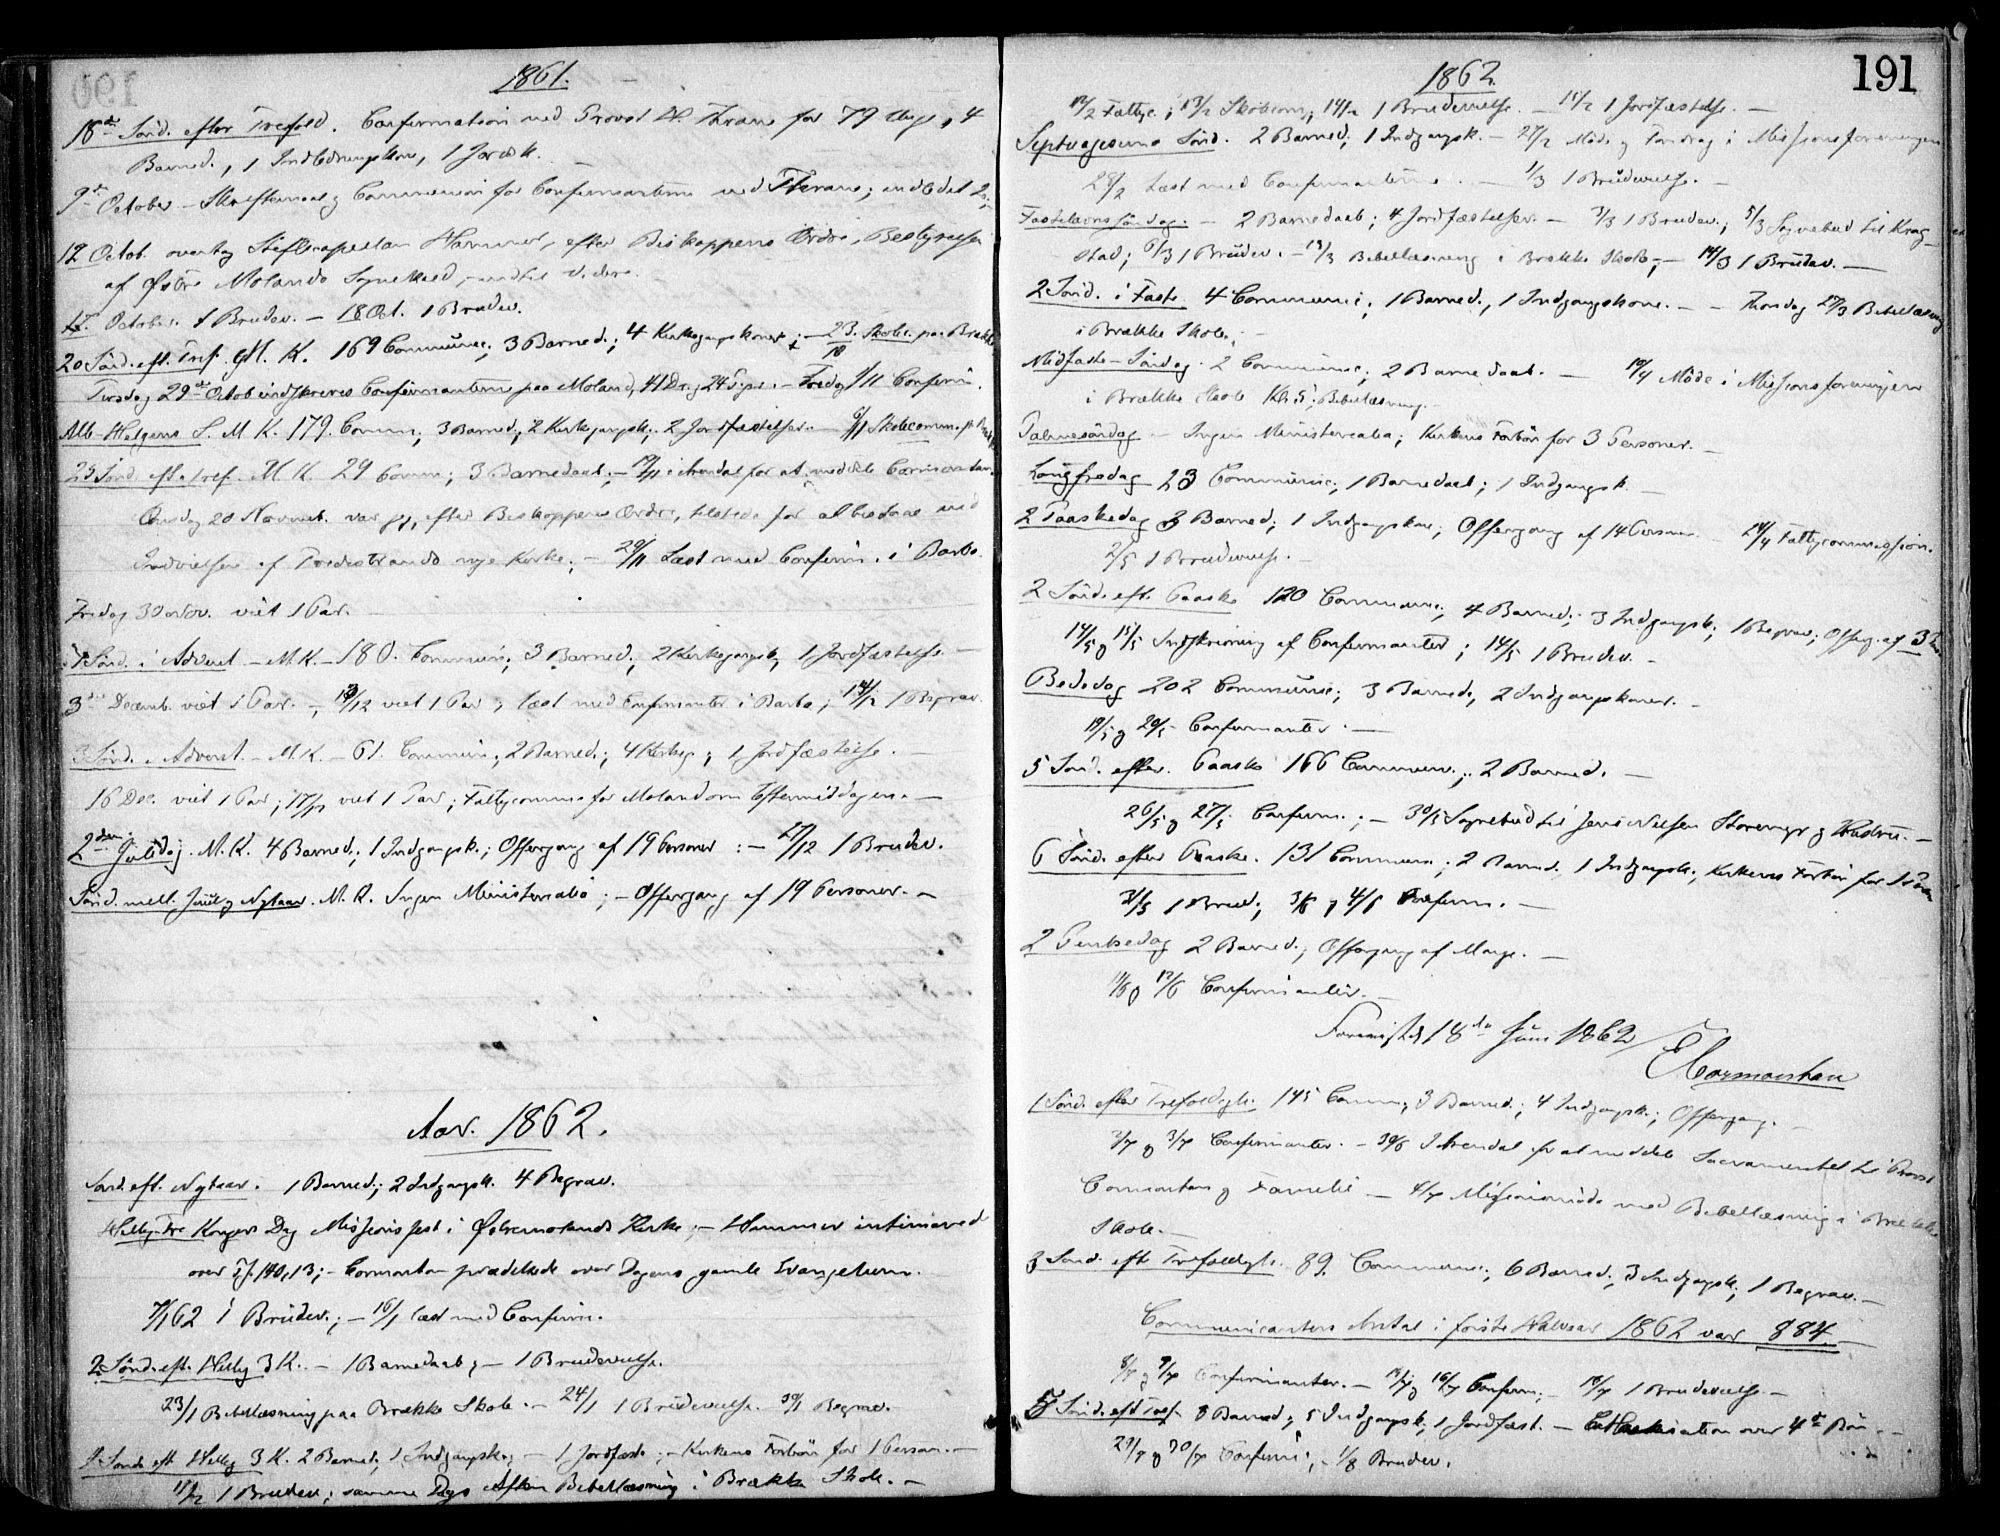 1861.
18de Sönd. efter Trefold. Confirmation ved Provst H. Thrane for 79 Unge, 4
Barned., 1 Indledningskone, 1 Jordk.
9de October – Skriftemaal og Communion for Confirmanterne ved Thrane; indledet 2
12 Octob. overtog Stiftscapellan Hammer, efter Biskoppens Ordre, Bestyrelsen
af Östre Molands Sognekald, indtil Videre.
17. October. 1 Brudev. – 18 Oct. 1 Brudev.
20 Sönd. eft. Tref. M. K. 169 Commune; 3 Barned.; 4 Kirkegangskoner; – 23/10 Skolec. paa Brække
Tirsdag 29de Octob indskreves Confirmanterne paa Moland, 41 Dr. og 24 Piger. – Fredag 1/11 Confirm.
Alle-Helgens S. M. K. 179. Comm; 3 Barned; 2 Kirkegangsk. 2 Jordfæstelser. – 6/11 Skolecomm.
25 Sönd. eft. Tref. M. K. 29 Comm; 3 Barnedaab; – 19/11 i Arendal for at meddele
Onsdag 20 Novemb. var jeg, efter Biskoppens Ordre, tilstede for at bistaae ved
Indvielsen af Tvedestrands nye Kirke; – 29/11 Læst med Confirm. i Barbo.
Fredag 30 Nov. viet 1 Par.
1 Sönd. i Advent – M.K. – 180. Commun; 3 Barned; 2 Kirkegangsk, 1 Jordfæstelse. –
3die Decemb. viet 1 Par. –, 13/12 viet 1 Par og læst med Confirmanter i Barbo; 14/12 1 Begrav.
3 Sönd. i Advent. – M.K. – 61. Commun; 2 Barned.; 4 Kirkeg; 1 Jordfæstelse. –
16 Dec. viet 1 Par; 17/12 viet 1 Par; Fattigcomm. for Moland om Eftermiddagen. –
2den Juledag. M. K. 4 Barned.; 1 Indgangsk.; Offergang af 19 Personer : – 27/12 1 Brudev.
Sönd. mell. Juul og Nytaar. M. K. Ingen Ministerialia; – Offergang af 19 Personer. –
Aar. 1862.
Sönd. eft. Nytaar. 1 Barned.; 2 Indgangsk. 4 Begrav.
Hellig-Tre Kongers Dag Missionsfest i Östremolands Kirke; – Hammer intimered
over Ps. 140,13; – Cormontan prædikede over Dagens gamle Evangelium.
7/1 62 1 Brudev.; – 16/1 læst med Confirm.
2 Sönd. eft. Hellig 3 K. – 1 Barnedaab; – 1 Brudevielse.
23/1 Bibellæsning paa Brække Skole. – 24/1 1 Brudevielse. 30/1 Begrav.
4 Sönd. eft. Hellig 3 K. 2 Barned; 1 Indgangsk.; – 1 Jordfæst. – Kirkens Forbön for 1 Person. –
11/2 1 Brudev; samme Dags Aften Bibellæsning i Brække Skole. –
191
1862.
12/2 Fattigc.; 13/2 Skolecom; 14/2 1 Brudevielse. – 15/2 1 Jordfæstelse. –
Septuagesima Sönd. 2 Barned; 1 Indgangsk. – 27/2 Möde og Foredrag i Missionsforeningen
28/2 Læst med Confirmanterne. – 1/3 1 Brudevielse. –
Fastelavnssöndag. – 2 Barnedaab; 4 Jordfæstelser. – 3/3 1 Brudev.; 5/3 Sognebud til Krog-
stad; 6/3 1 Brudev. – 13/3 Bibellæsning i Brække Skole; – 14/3 1 Brudev. –
2 Sönd. i Faste 4 Communi; 1 Barned., 1 Indgangskone. – – Torsdag 27/3 Bibellæsning
i Brække Skole. –
Midfaste-Söndag. 2 Commune; 2 Barnedaab. – 10/4 Möde i Missionsforeningen
i Brække Skole Kl: 5; Bibellæsning.
Palmesöndag – Ingen Ministerialia; Kirkens Forbön for 3 Personer. –
Langfredag 23 Communic; 1 Barnedaab; 1 Indgangsk. –
2 Paaskedag 3 Barned; 1 Indgangskone; Offergang af 14 Personer. 24/4 Fattigcommission.
2/5 1 Brudevielse. –
2 Sönd. eft. Paaske 120 Commune; 4 Barned; 3 Indgangsk; 1 Begrav; Offerg. af 3
14/5 og 15/5 Indskrivning af Confirmanter; 14/5 1 Brudev. –
Bededag 202 Commune; 3 Barned, 2 Indgangskoner. –
19/5 og 20/5 Confirmanter. –
5 Sönd. efter Paaske 166 Commun.; 2 Barned. –
26/5 og 27/5 Confirm.; – 30/5 Sognebud til Jens Nielsen Storemyr og Hustru. –
6 Sönd. efter Paaske. 131 Commun; 2 Barned. 1 Indgangsk., Kirkens Forbön for 1
31/5 1 Brud.; 3/6 og 4/6 Confirm. –
2 Pintsedag 2 Barned.; Offergang af Mange. –
11/6 og 12/6 Confirmanter. –
Forevist d 18de Juni 1862
Cormontan
1 Sönd. efter Trefoldigh. 145 Comm; 3 Barned.; 4 Indgangsk.; Offergang. –
2/7 og 3/7 Confirmanter. – 30/6 I Arendal for at meddele Sacramentet til Provst
Cormontan og Familie – 4/7 Missionsmöde med Bibellæsning i Brække
Skole. –
3 Sönd. eft Trefoldigh. 89. Commune; 6 Barned; 3 Indgangsk; 1 Begrav. –
Communicanters Antal i förste Halvaar 1862 var 884. –
8/7 og 9/7 Confirmanter. – 15/7 og 16/7 Confirm; – 18/7 1 Brudevielse. –
5 Sönd. eft Tref. 8 Barned; 5 Indgangsk; 1 Jordfæst. – Catechisation over 4de Bön –
29/7 og 30/7 Confirm; – 1/8 Brudev.